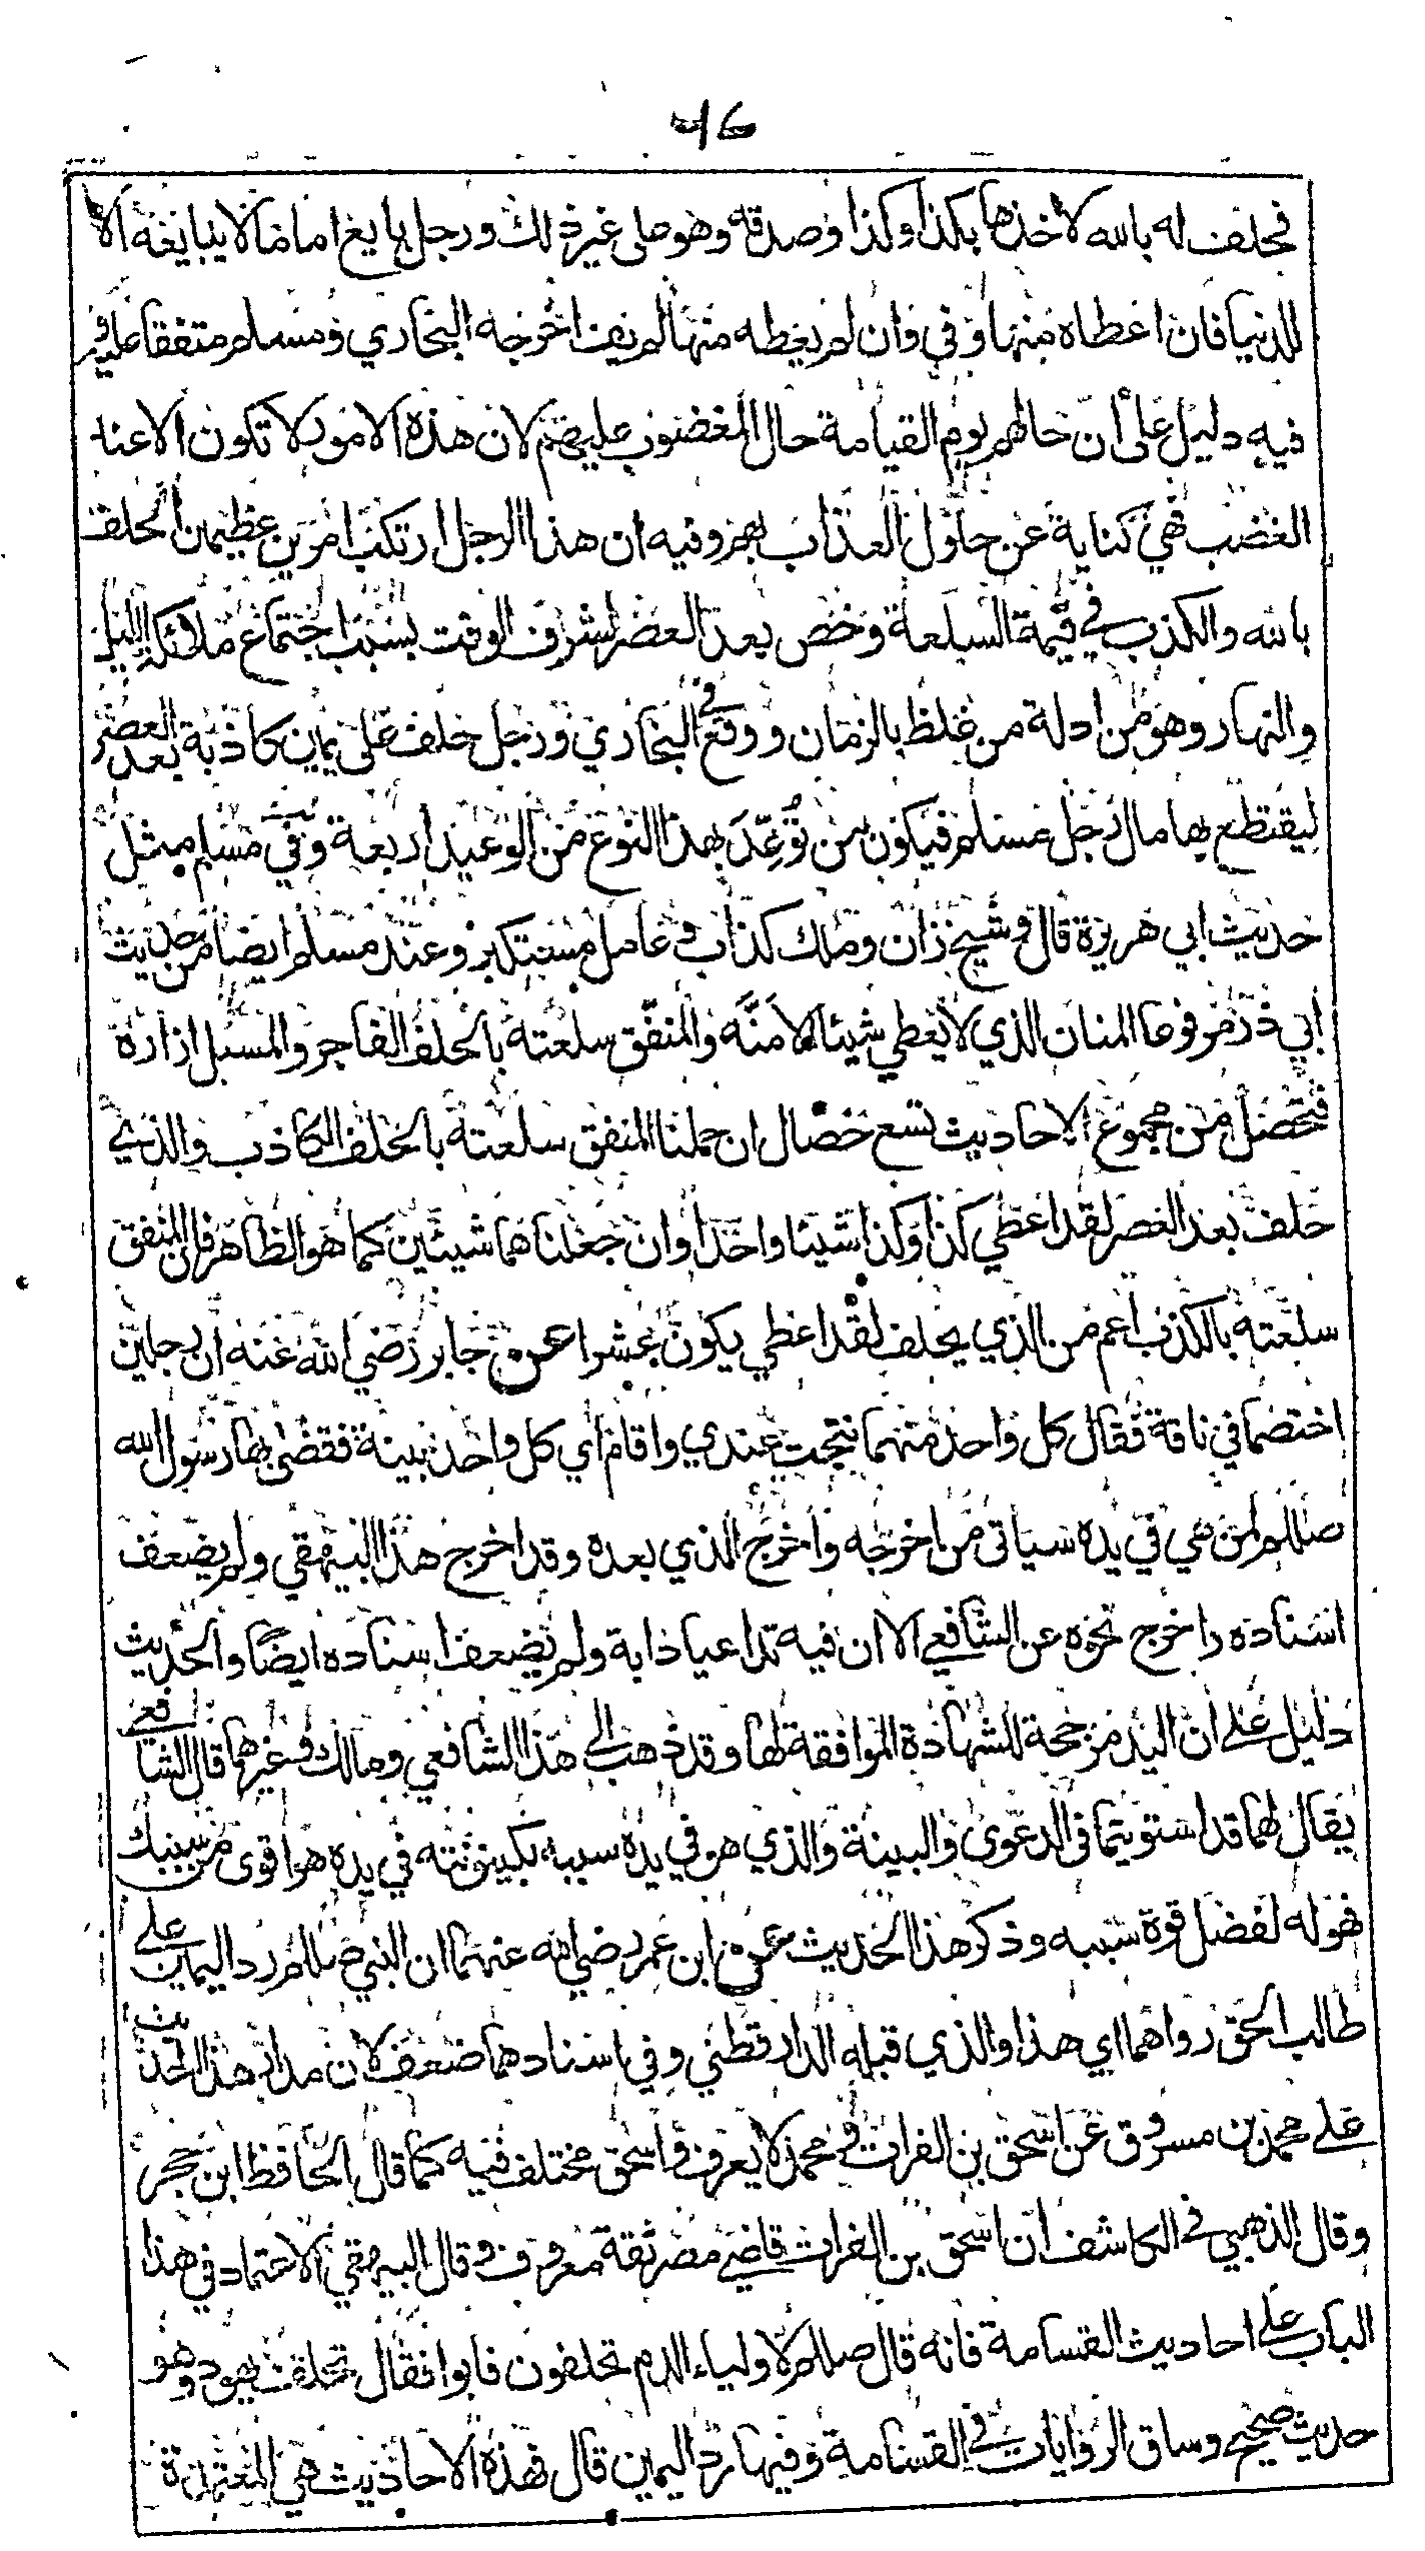 46
فحلف له بالله لاخذها بكذا وكذا وصدقه وهو على غير ذلك ورجل بايع اماما لا يبايعه الا
للدنيا فان اعطاه منها وفى وان لم يعطه منها لم يف اخرجه البخاري ومسلم متفقا عليه و
فيه دليل على أن حالهم يوم القيامة حال المغضوب عليهم لان هذه الامور لا تكون الا عند
الغضب فهي كناية عن حلول العذاب بهم وفيه ان هذا الرجل ارتكب امرين عظيمين الحلف
بالله والكذب في قيمة السلعة وخص بعد العصر لشرف الوقت بسبب اجتماع ملائكة الليل
والنهار وهو من ادلة من غلظ بالزمان ووقع في البخاري ورجل حلف على يمين كاذبة بعد العصر
ليقتطع بها مال رجل مسلم فيكون من تُوُعِّدَ بهذا النوع من الوعيد اربعة وفي مسلم مثل
حديث ابي هريرة قال وشيخ زان وملك كذاب وعامل مستكبر وعند مسلم ايضا من حديث
أبي ذر مرفوعا المنان الذي لا يعطي شيئا الا منَّه والمنفّق سلعته بالحلف الفاجر والمسبل ازاره
فتحصل من مجموع الاحاديث تسع خصال ان حملنا المنفق سلعته بالحلف الكاذب والذي
حلف بعد العصر لقد اعطي كذا وكذا شيئا واحدا وان جعلناهما شيئين كما هو الظاهر فان المنفق
سلعته بالكذب اعم من الذي يحلف لقد اعطي يكون عشرا عن جابر رضي الله عنه ان رجلين
اختصما في ناقة فقال كل واحد منهما نتجت عندي واقام أي كل واحد بينة فقضى بها رسول الله
صللم لمن هي في يده سياتي من اخرجه واخرج الذي بعده وقد اخرج هذا البيهقي ولم يضعف
اسناده واخرج نحوه عن الشافعي الا ان فيه تداعيا دابة ولم يضعف اسناده ايضًا والحديث
دليل على ان اليد مرجحة للشهادة الموافقة لها وقد ذهب الى هذا الشافعي ومالك وغيرهما قال الشافعي
يقال لهما قد استويتما في الدعوى والبينة والذي هو في يده سببه بكينونته في يده هو اقوى من سببك
فهو له لفضل قوة سببه وذكر هذا الحديث عن ابن عمر رضي الله عنهما ان النبي صللم رد اليمين على
طالب الحق رواهما اي هذا والذي قبله الدارقطني وفي اسنادهما ضعف لان مدار هذا الحديث
على محمد بن مسروق عن اسحق بن الفرات ومحمد لا يعرف واسحق مختلف فيه كما قال الحافظ ابن حجر
وقال الذهبي في الكاشف أن اسحق بن الفرات قاضي مصر ثقة معروف وقال البيهقي الاعتماد في هذا
الباب على احاديث القسامة فانه قال صللم لاولياء الدم تحلفون فابوا فقال تحلف يهود وهو
حديث صحيح وساق الروايات في القسامة وفيها رد اليمين قال فهذه الاحاديث هي المعتمدة